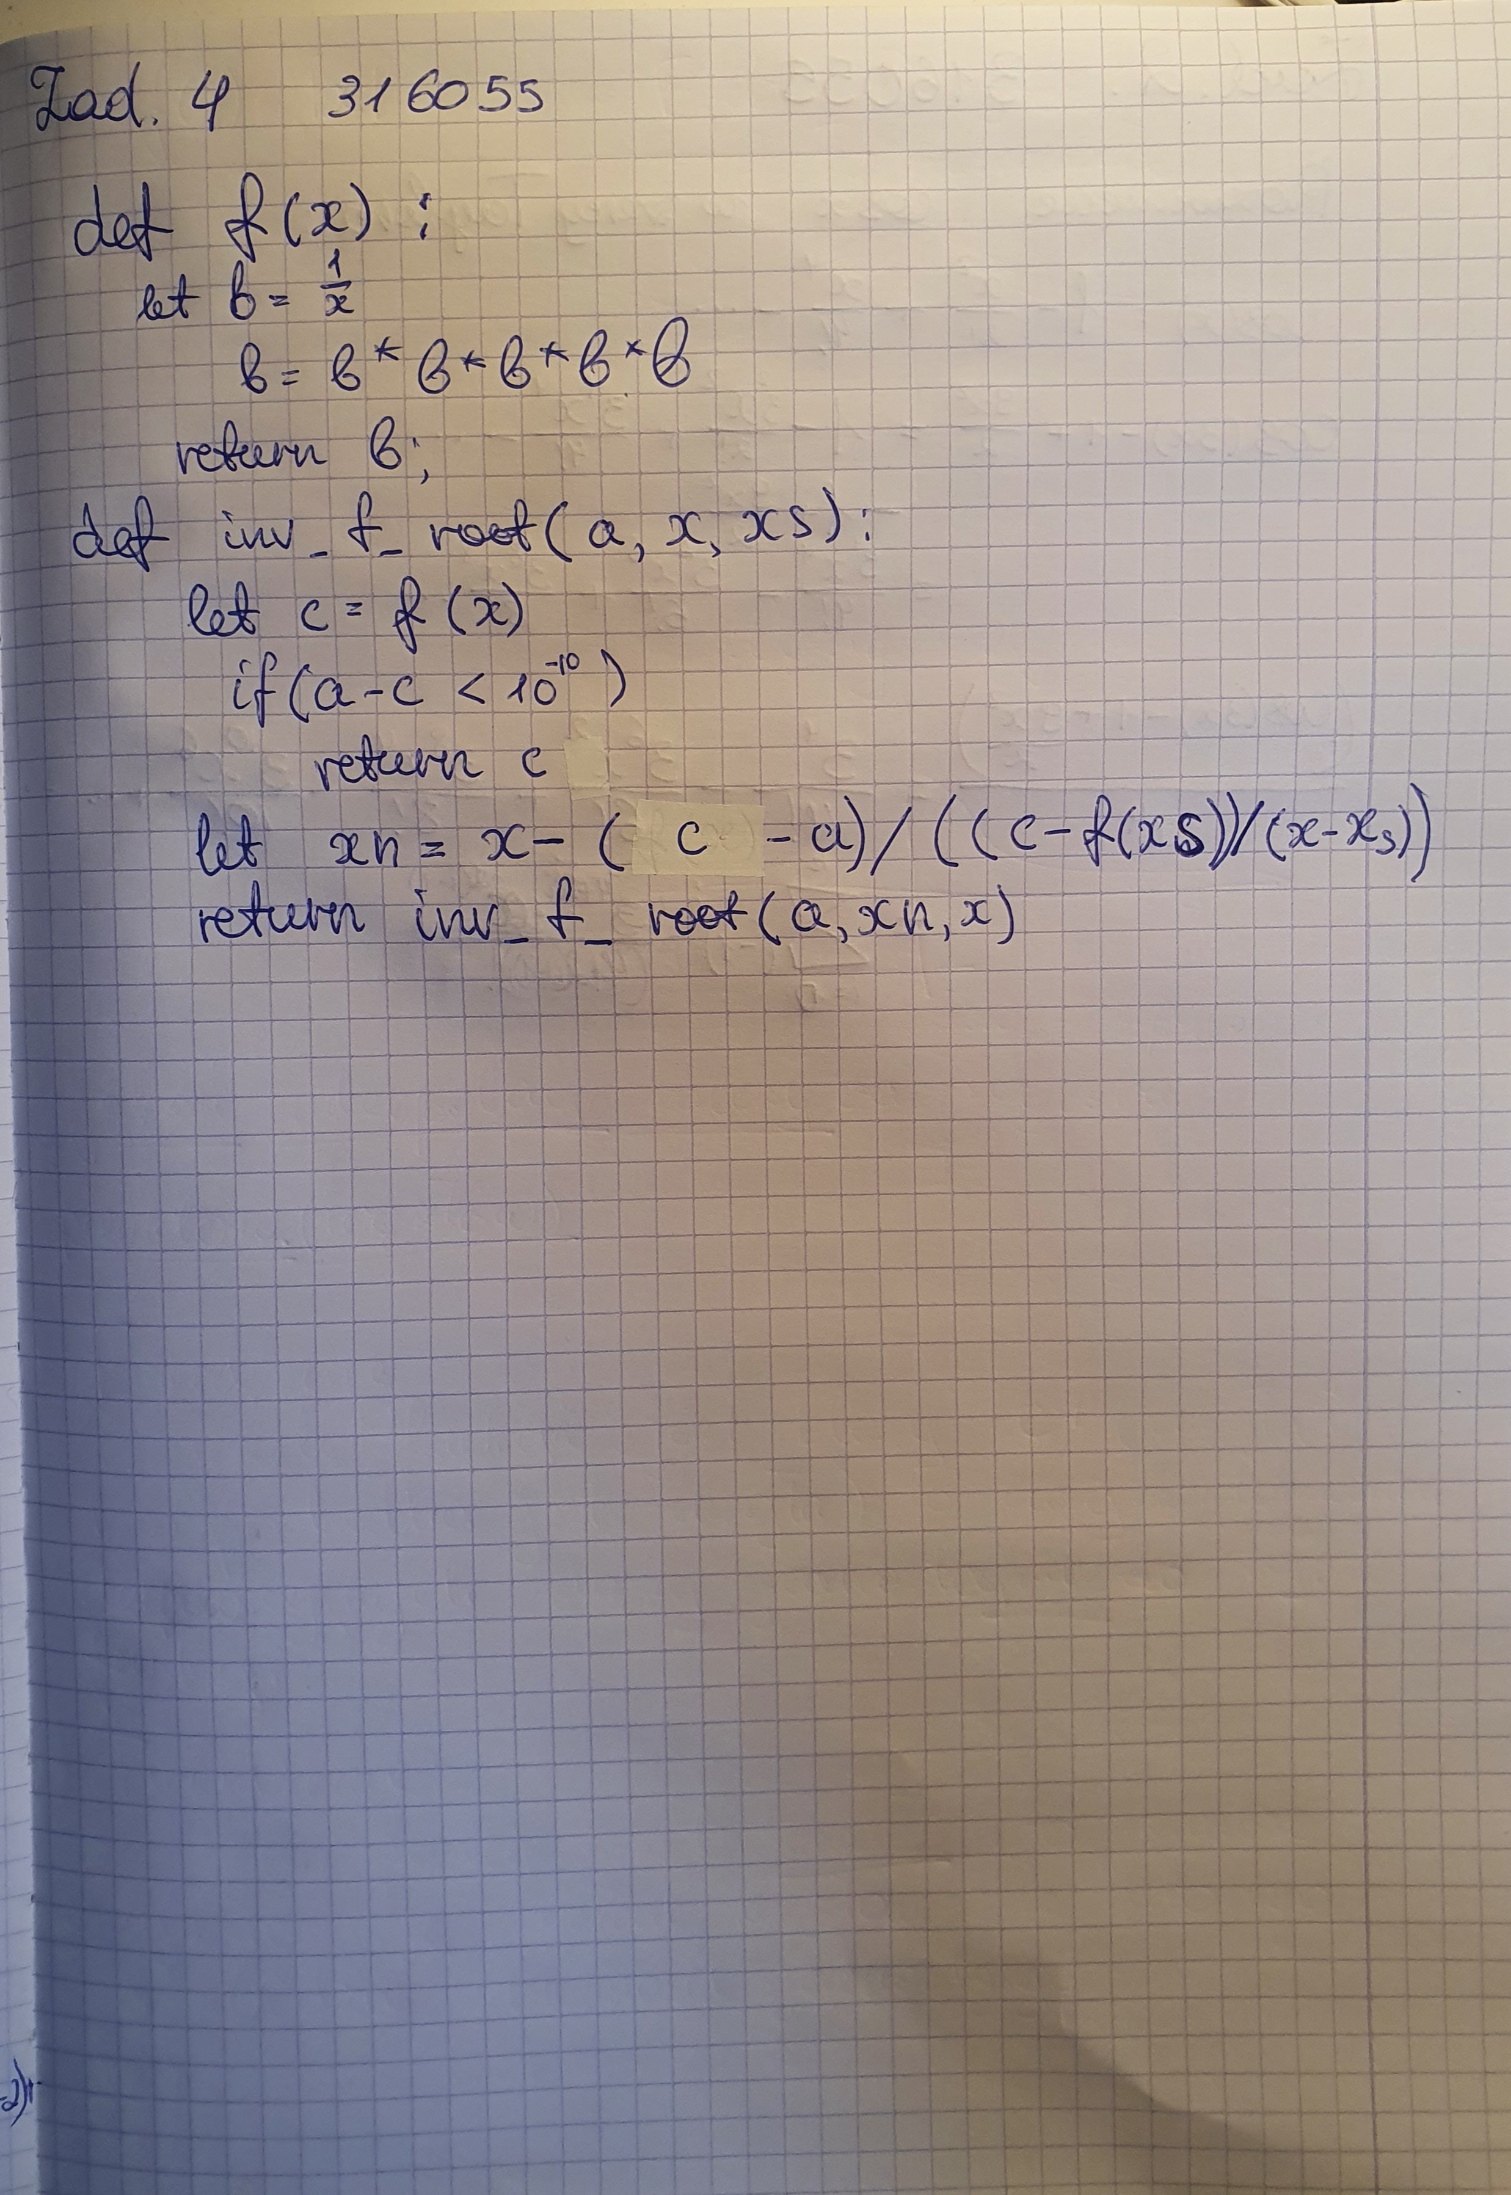 Zad. 4 316055
def f(x):
let b = 1/x
b = b * b * b * b * b
return b;
def inv_f_root(a, x, xs):
let c = f(x)
if (a - c < 10^-10)
return c
let xn = x - ( c - a) / ((c - f(xs))/(x - xs))
return inv_f_root(a, xn, x)